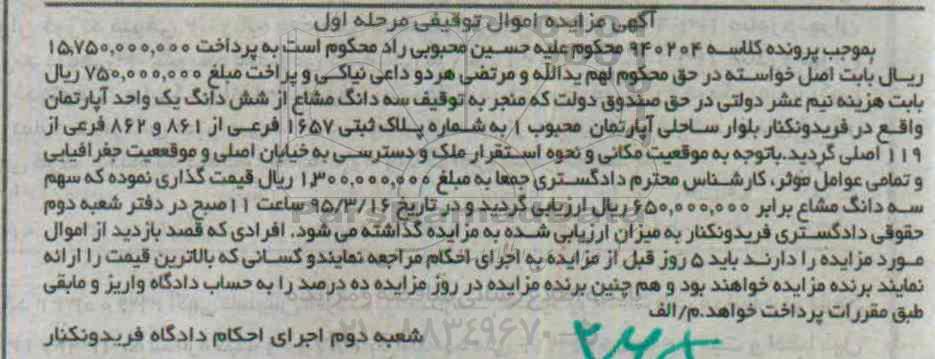 آگهی مزایده اموال توقیفی مرحله اول
بموجب پرونده کلاسه ۹۴۰۲۰۴ محکوم علیه حسین محبوبی راد محکوم است به پرداخت ۱۵,۷۵۰,۰۰۰,۰۰۰
ریال بابت اصل خواسته در حق محکوم لهم یدالله و مرتضی هردو داعی نیاکی و پراخت مبلغ ۷۵۰,۰۰۰,۰۰۰ ریال
بابت هزینه نیم عشر دولتی در حق صندوق دولت که منجر به توقیف سه دانگ مشاع از شش دانگ یک واحد آپارتمان
واقع در فریدونکنار بلوار ساحلی آپارتمان محبوب ۱ به شماره پلاک ثبتی ۱۶۵۷ فرعی از ۸۶۱ و ۸۶۲ فرعی از
۱۱۹ اصلی گردید.باتوجه به موقعیت مکانی و نحوه استقرار ملک و دسترسی به خیابان اصلی و موقععیت جغرافیایی
و تمامی عوامل موثر، کارشناس محترم دادگستری جمعا به مبلغ ۱,۳۰۰,۰۰۰,۰۰۰ ریال قیمت گذاری نموده که سهم
سه دانگ مشاع برابر ۶۵۰,۰۰۰,۰۰۰ ریال ارزیابی گردید و در تاریخ ۹۵/۳/۱۶ ساعت ۱۱ صبح در دفتر شعبه دوم
حقوقی دادگستری فریدونکنار به میزان ارزیابی شده به مزایده گذاشته می شود. افرادی که قصد بازدید از اموال
مورد مزایده را دارند باید ۵ روز قبل از مزایده به اجرای احکام مراجعه نمایندو کسانی که بالاترین قیمت را ارائه
نمایند برنده مزایده خواهند بود و هم چنین برنده مزایده در روز مزایده ده درصد را به حساب دادگاه واریز و مابقی
طبق مقررات پرداخت خواهد.م/الف
شعبه دوم اجرای احکام دادگاه فریدونکنار